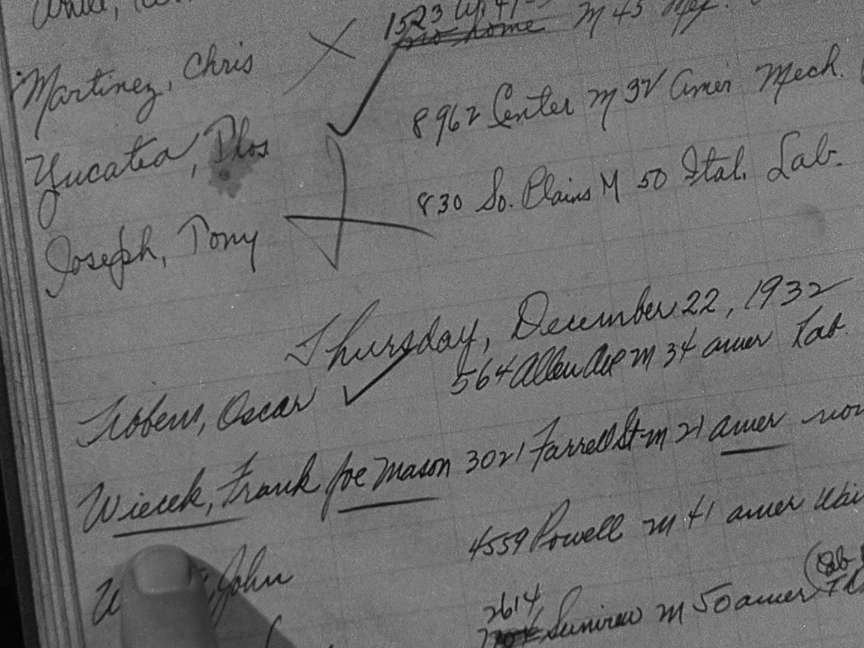 1523
no home M 45 Mex.
Martinez, Chris
8962 Center M 32 Amer Mech.
Yucatea, Plos
830 So. Plains M 50 Ital. Lab.
Joseph, Tony
Thursday, December 22, 1932
Oscar 564 Allen Ave M 34 amer Lab.
Wiecek, Frank Joe Mason 3021 Farrell St M 21 amer
John 4559 Powell M 41 amer
2614
M 50 amer